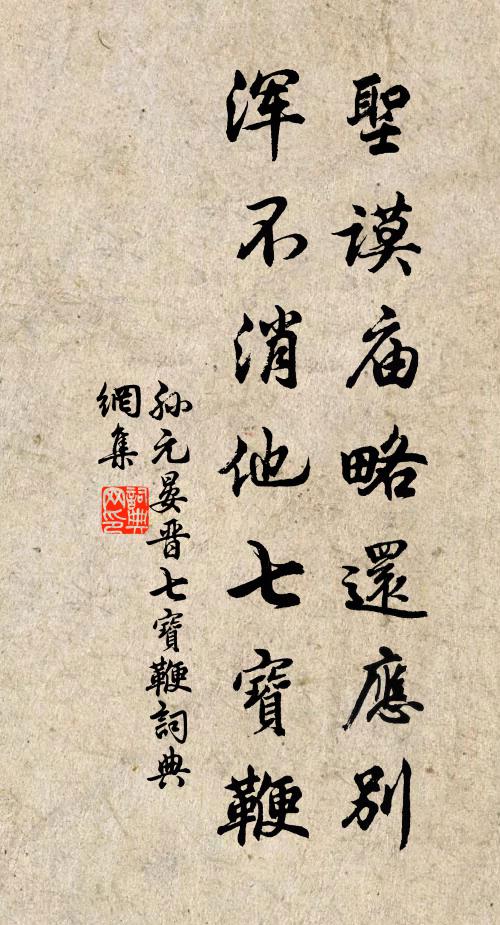 聖謨庙略還應別
浑不消他七寶鞭
孙元晏晋七寶鞭詞典
網集
詞典
网印